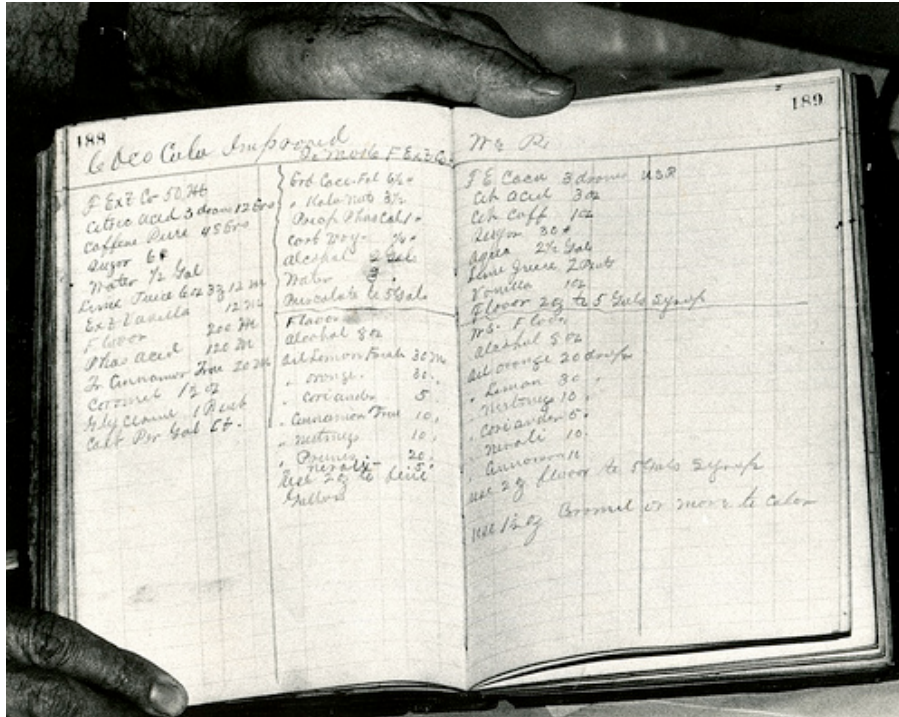 188
Coco Cola Improved
F Ext Co 50 M
Citric Acid 3 drams 12 Grs
Caffine Pure 48 Grs
Sugar 6#
Water 1/2 Gal
Lime Juice 6 oz 3 12 M
Ext Vanilla 12 M
Flavor 200 M
Phos Acid 120 M
Tr Cinnamon True 20 M
Coromel 1 oz
Glycerine
Cost Per Gal
To Make F Ext Co.
Grd Coco
" Kola Nuts 3 1/2
Phos Cal 1 "
Alcohol 2 Gals
Water 3 "
Percolate to 5 Gals
Flavor
Alcohol 8 oz
Oil Lemon Fresh 30 M
" Orange 30 "
" Coriander 5 "
" Cinnamon True 10 "
" Nutmeg 10 "
" 20 "
" Neroli 5 "
Use 2 oz to five
Gallons
189
F E Coca 3 drams USP
Cit Acid 3 oz
Cit Caff 1 oz
Sugar 30 #
Aqua 2 1/2 Gal
Lime Juice 2 Pints
Vanilla 1 oz
Flavor 2 oz to 5 Gals Syrup
Flavor
Alcohol 8 oz
Oil Orange 20 drops
" Lemon 30 "
" Nutmeg 10 "
" Coriander 5 "
" Neroli 10 "
" Cinnamon 10
use 2 oz flavor to 5 Gals Syrup
use 1 1/2 oz Coromel or more to color